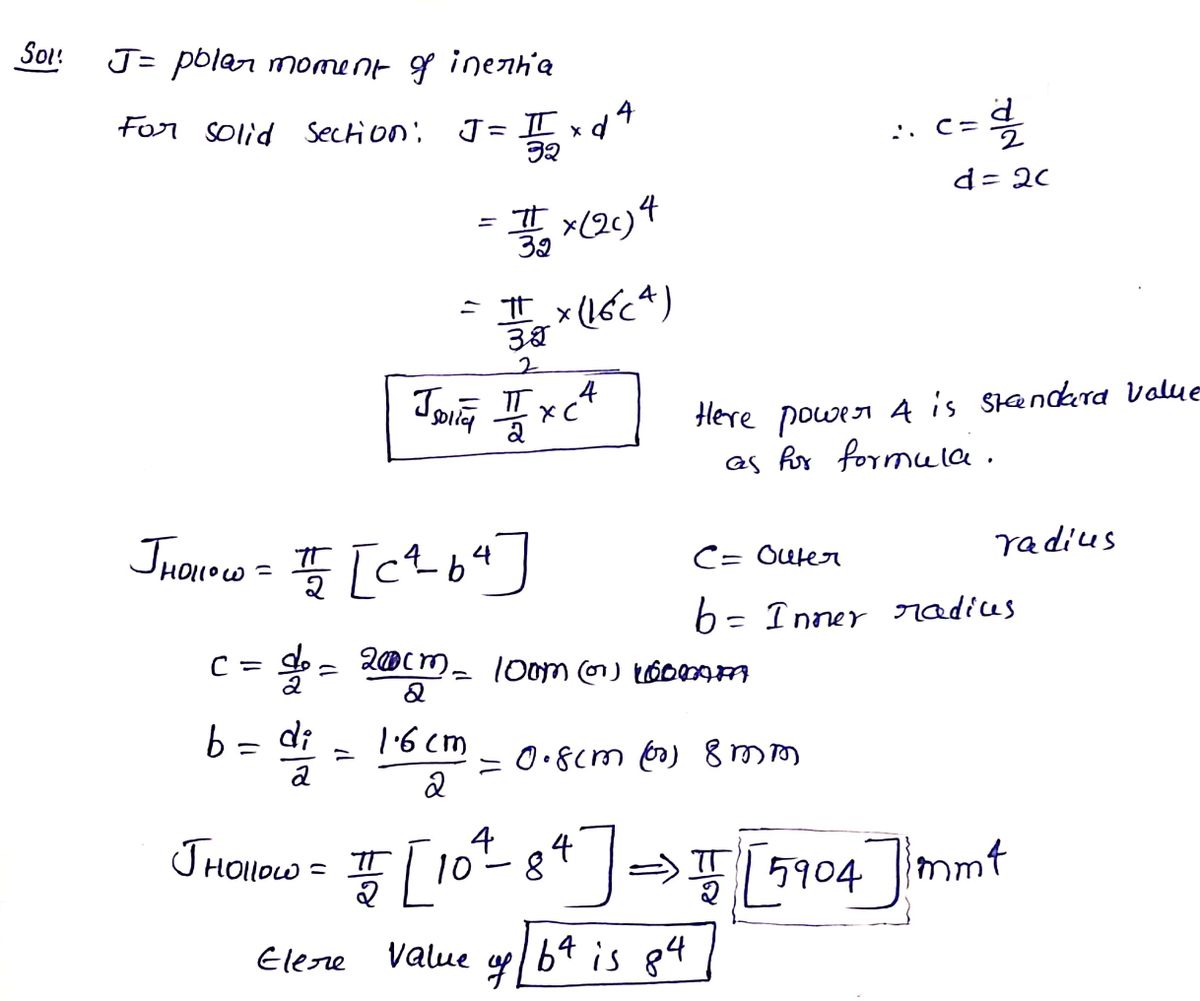 Sol: J = polar moment of inertia
For solid section: J = π/32 × d^4 ∴ c = d/2
d = 2c
= π/32 × (2c)^4
= π/32 × (16c^4)
2
J solid = π/2 × c^4
Here power 4 is standard value
as for formula.
J Hollow = π/2 [c^4 - b^4] C = Outer radius
b = Inner radius
c = do/2 = cm/2 = (or)
b = di/2 = 1.6 cm/2 = 0.8cm (or) 8 mm
J Hollow = π/2 [10^4 - 8^4] ⇒ π/2 [5904] mm^4
value of b^4 is 8^4